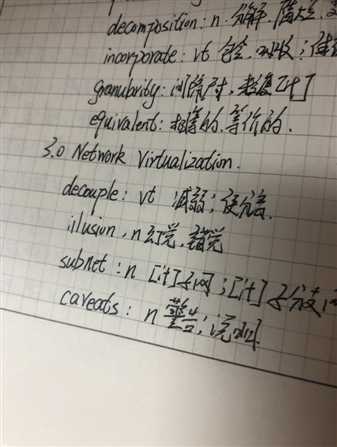 decomposition: n 分解,腐烂,
incorporate: vt 包含,吸收;
granularity: 间隔尺寸,粒度[计]
equivalent: 相等的,等价的.
3.0 Network Virtualization.
decouple: vt 减弱;使分离.
illusion, n 幻觉,错觉
subnet: n [计]子网;[计]子
caveats: n 警告;说明